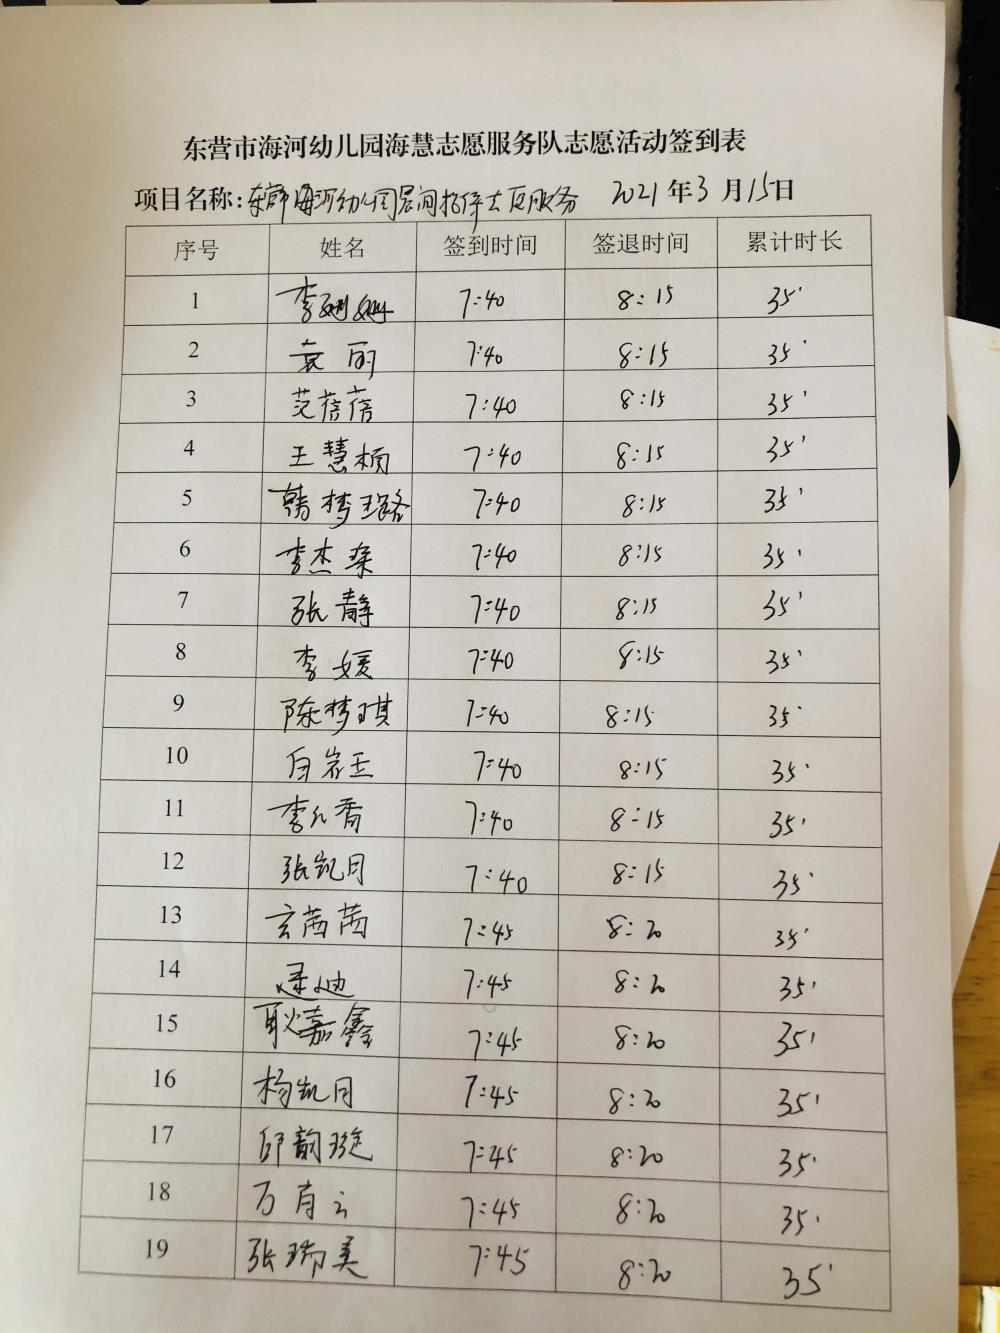 东营市海河幼儿园海慧志愿服务队志愿活动签到表
项目名称:东营市海河幼儿园晨间接待志愿服务 2021年3月15日
序号 姓名 签到时间 签退时间 累计时长
1 李姗姗 7:40 8:15 35'
2 袁丽 7:40 8:15 35'
3 范蓓蓓 7:40 8:15 35'
4 王慧 7:40 8:15 35'
5 韩梦璐 7:40 8:15 35'
6 李杰 7:40 8:15 35'
7 张静 7:40 8:15 35'
8 李媛 7:40 8:15 35'
9 陈梦琪 7:40 8:15 35'
10 白岩玉 7:40 8:15 35'
11 李 香 7:40 8:15 35'
12 张凯月 7:40 8:15 35'
13 玄茜茜 7:45 8:20 35'
14 迪 7:45 8:20 35'
15 耿嘉鑫 7:45 8:20 35'
16 杨凯月 7:45 8:20 35'
17 邱韵璇 7:45 8:20 35'
18 万 云 7:45 8:20 35'
19 张瑞美 7:45 8:20 35'